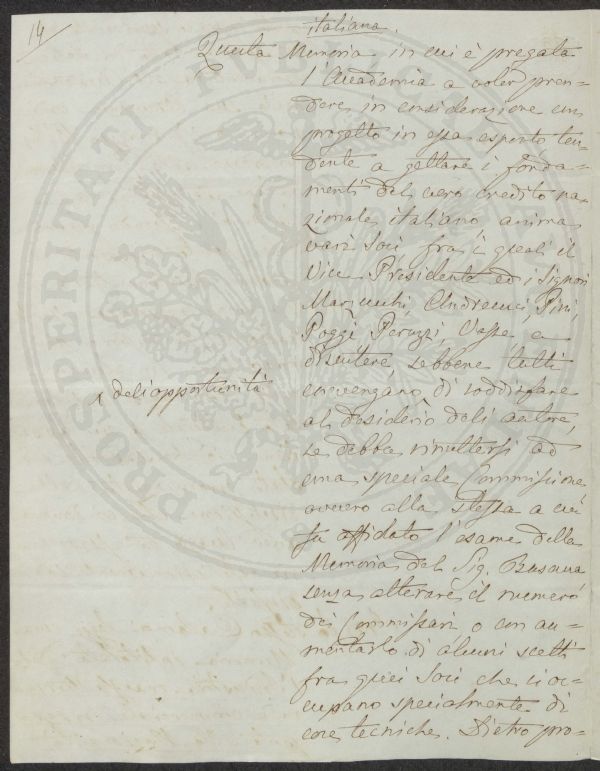 14
italiana.
Questa Memoria in cui è pregata
l'Accademia a voler pren=
dere in considerazione un
progetto in essa esposto ten=
dente a gettare i fonda=
menti del vero credito na=
zionale italiano anima
varj Soci fra i quali il
Vice Presidente ed i Signori
Marzucchi, Andreucci, Pini,
Poggi, Peruzzi, a
discutere, sebbene tutti
^ dell'opportunità
convengano ^ di soddisfare
al desiderio dell'autore,
se debba rimettersi ad
una speciale Commissione
ovvero alla stessa a cui
fu affidato l'esame della
Memoria del Sig. Busacca
senza alterare il numero
dei Commissari o con au=
mentarlo di alcuni scelti
fra quei Soci che si oc=
cupano specialmente di
cose tecniche. Dietro pro=
PROSPERITATI PUBLICAE